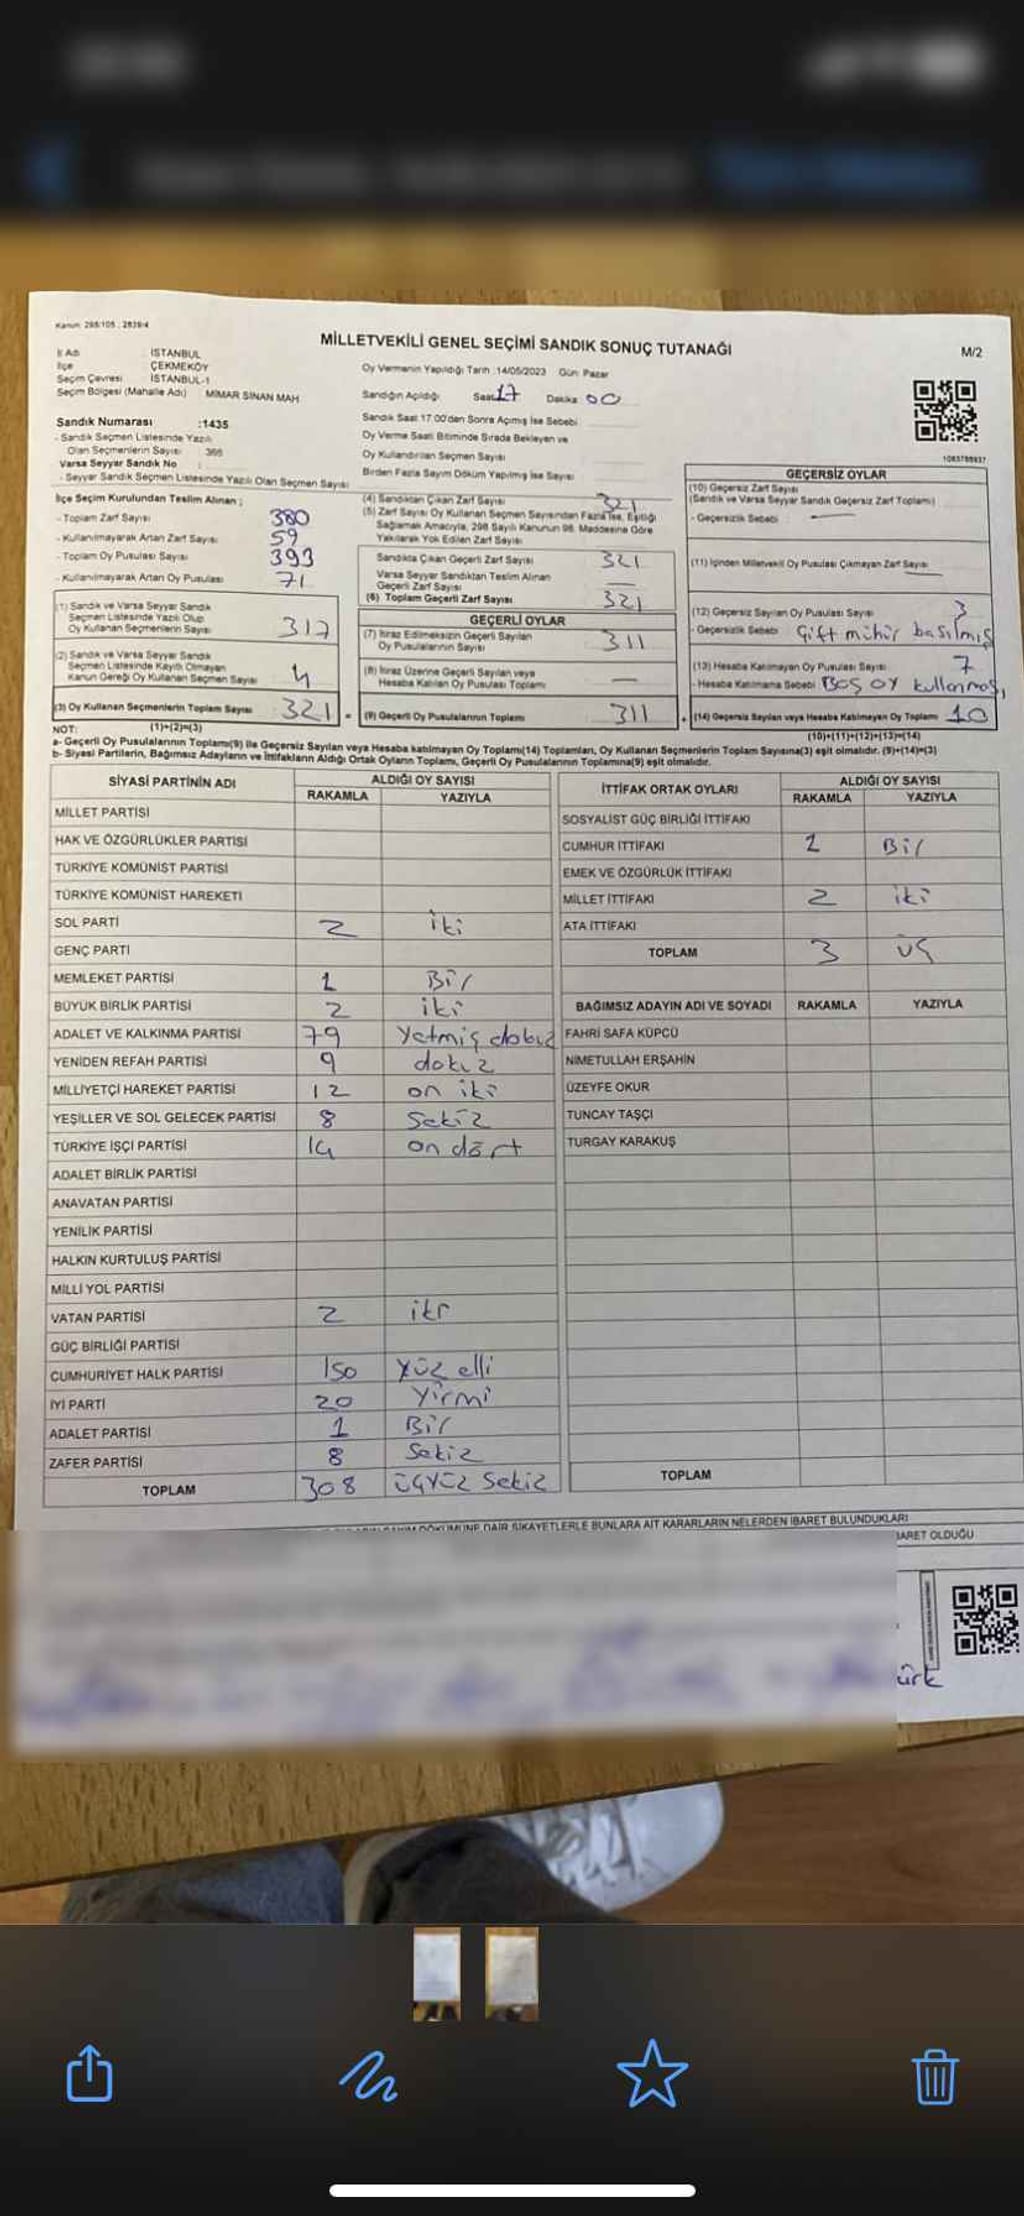 Kanun: 298/105 ; 2839/4
MİLLETVEKİLİ GENEL SEÇİMİ SANDIK SONUÇ TUTANAĞI
M/2
İl Adı : İSTANBUL
İlçe : ÇEKMEKÖY
Seçim Çevresi : İSTANBUL-1
Seçim Bölgesi (Mahalle Adı) : MİMAR SİNAN MAH
Oy Vermenin Yapıldığı Tarih :14/05/2023 Gün: Pazar
Sandığın Açıldığı Saat: 17 Dakika 00
Sandık Saat 17.00'den Sonra Açımış İse Sebebi
Oy Verme Saati Bitiminde Sırada Bekleyen ve
Oy Kullandırılan Seçmen Sayısı
Birden Fazla Sayım Döküm Yapılmış İse Sayısı
Sandık Numarası :1435
- Sandık Seçmen Listesinde Yazılı
Olan Seçmenlerin Sayısı : 366
Varsa Seyyar Sandık No :
- Seyyar Sandık Seçmen Listesinde Yazılı Olan Seçmen Sayısı
İlçe Seçim Kurulundan Teslim Alınan ;
- Toplam Zarf Sayısı 380
- Kullanılmayarak Artan Zarf Sayısı 59
- Toplam Oy Pusulası Sayısı 393
- Kullanılmayarak Artan Oy Pusulası 71
(1) Sandık ve Varsa Seyyar Sandık
Seçmen Listesinde Yazılı Olup
Oy Kullanan Seçmenlerin Sayısı 317
(2) Sandık ve Varsa Seyyar Sandık
Seçmen Listesinde Kayıtlı Olmayan
Kanun Gereği Oy Kullanan Seçmen Sayısı 4
(3) Oy Kullanan Seçmenlerin Toplam Sayısı 321 =
(1)+(2)=(3)
(4) Sandıktan Çıkan Zarf Sayısı 321
(5) Zarf Sayısı Oy Kullanan Seçmen Sayısından Fazla İse, Eşitliği
Sağlamak Amacıyla, 298 Sayılı Kanunun 98. Maddesine Göre
Yakılarak Yok Edilen Zarf Sayısı
Sandıkta Çıkan Geçerli Zarf Sayısı 321
Varsa Seyyar Sandıktan Teslim Alınan
Geçerli Zarf Sayısı —
(6) Toplam Geçerli Zarf Sayısı 321
GEÇERLİ OYLAR
(7) İtiraz Edilmeksizin Geçerli Sayılan
Oy Pusulalarının Sayısı 311
(8) İtiraz Üzerine Geçerli Sayılan veya
Hesaba Katılan Oy Pusulası Toplamı —
(9) Geçerli Oy Pusulalarının Toplamı 311 +
1083788937
GEÇERSİZ OYLAR
(10) Geçersiz Zarf Sayısı
(Sandık ve Varsa Seyyar Sandık Geçersiz Zarf Toplamı)
- Geçersizlik Sebebi : —
(11) İçinden Milletvekili Oy Pusulası Çıkmayan Zarf Sayısı —
(12) Geçersiz Sayılan Oy Pusulası Sayısı 3
- Geçersizlik Sebebi Çift mühür basılmış
(13) Hesaba Katılmayan Oy Pusulası Sayısı 7
- Hesaba Katılmama Sebebi Boş oy kullanmış,
(14) Geçersiz Sayılan veya Hesaba Katılmayan Oy Toplamı 10
(10)+(11)+(12)+(13)=(14)
NOT:
a- Geçerli Oy Pusulalarının Toplamı(9) ile Geçersiz Sayılan veya Hesaba katılmayan Oy Toplamı(14) Toplamları, Oy Kullanan Seçmenlerin Toplam Sayısına(3) eşit olmalıdır. (9)+(14)=(3)
b- Siyasi Partilerin, Bağımsız Adayların ve İttifakların Aldığı Ortak Oyların Toplamı, Geçerli Oy Pusulalarının Toplamına(9) eşit olmalıdır.
SİYASİ PARTİNİN ADI ALDIĞI OY SAYISI
RAKAMLA YAZIYLA
MİLLET PARTİSİ
HAK VE ÖZGÜRLÜKLER PARTİSİ
TÜRKİYE KOMÜNİST PARTİSİ
TÜRKİYE KOMÜNİST HAREKETİ
SOL PARTİ 2 iki
GENÇ PARTİ
MEMLEKET PARTİSİ 1 Bir
BÜYÜK BİRLİK PARTİSİ 2 iki
ADALET VE KALKINMA PARTİSİ 79 Yetmiş dokuz
YENİDEN REFAH PARTİSİ 9 dokuz
MİLLİYETÇİ HAREKET PARTİSİ 12 on iki
YEŞİLLER VE SOL GELECEK PARTİSİ 8 Sekiz
TÜRKİYE İŞÇİ PARTİSİ 14 on dört
ADALET BİRLİK PARTİSİ
ANAVATAN PARTİSİ
YENİLİK PARTİSİ
HALKIN KURTULUŞ PARTİSİ
MİLLİ YOL PARTİSİ
VATAN PARTİSİ 2 iki
GÜÇ BİRLİĞİ PARTİSİ
CUMHURİYET HALK PARTİSİ 150 Yüz elli
İYİ PARTİ 20 Yirmi
ADALET PARTİSİ 1 Bir
ZAFER PARTİSİ 8 Sekiz
TOPLAM 308 üçyüz Sekiz
İTTİFAK ORTAK OYLARI ALDIĞI OY SAYISI
RAKAMLA YAZIYLA
SOSYALİST GÜÇ BİRLİĞİ İTTİFAKI
CUMHUR İTTİFAKI 1 Bir
EMEK VE ÖZGÜRLÜK İTTİFAKI
MİLLET İTTİFAKI 2 iki
ATA İTTİFAKI
TOPLAM 3 üç
BAĞIMSIZ ADAYIN ADI VE SOYADI RAKAMLA YAZIYLA
FAHRİ SAFA KÜPCÜ
NİMETULLAH ERŞAHİN
ÜZEYFE OKUR
TUNCAY TAŞÇI
TURGAY KARAKUŞ
TOPLAM
DÖKÜMÜNE DAİR ŞİKAYETLERLE BUNLARA AİT KARARLARIN NELERDEN İBARET BULUNDUKLARI
İBARET OLDUĞU
ürk